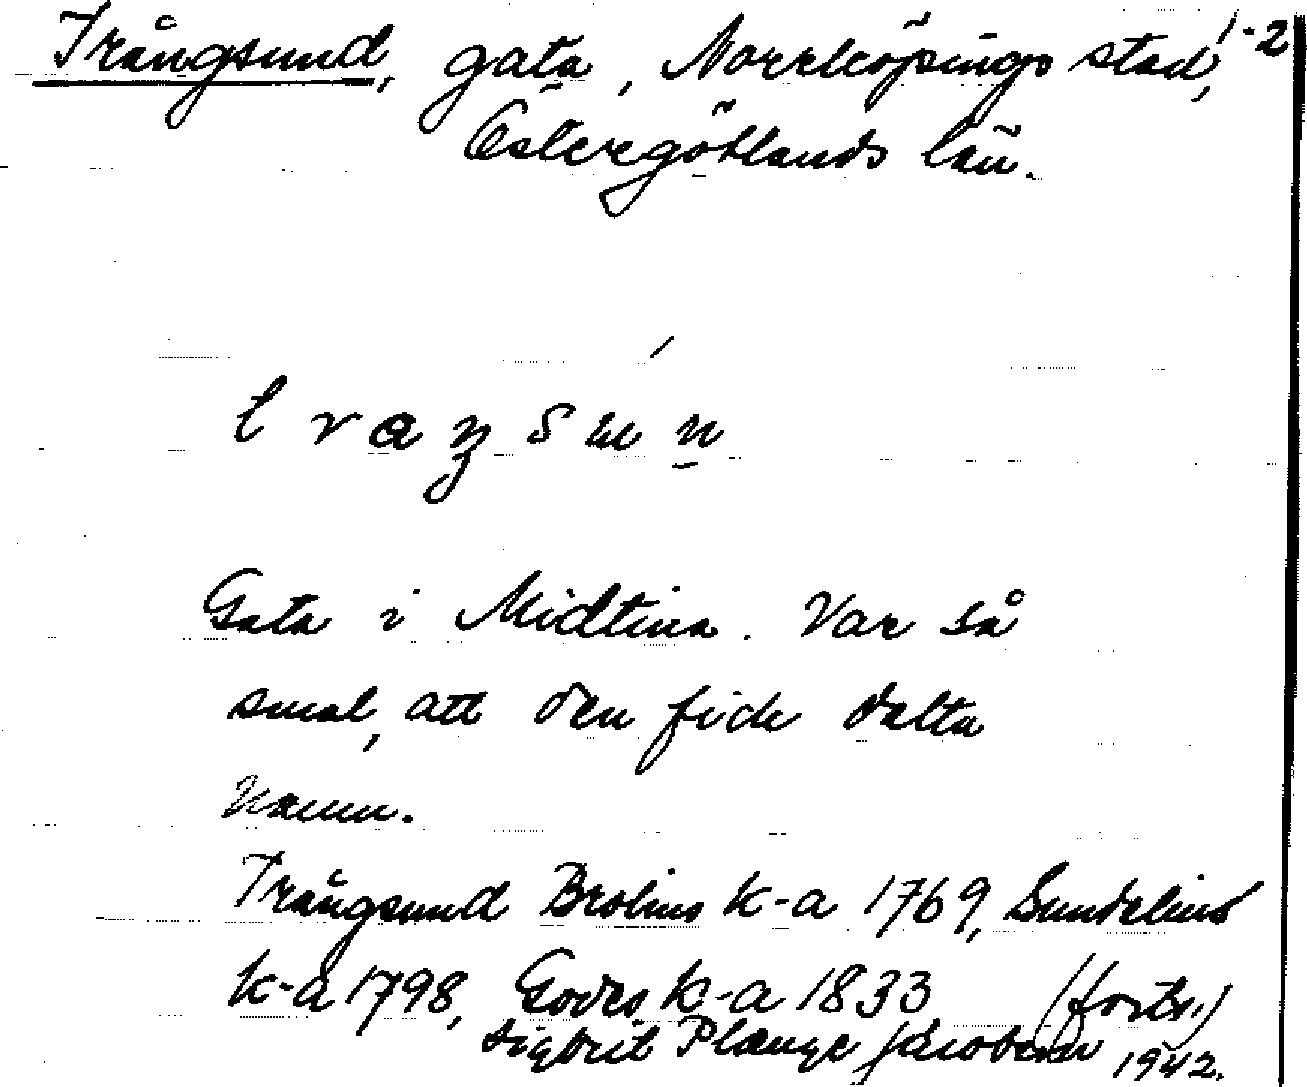 Trångsund, gata, Norrköpings stad, 1-2
Östergötlands län.
Gata i Midtina. Var så
smal, att den fick detta
namn.
Trångsund Brolins k-a 1769, Sundelius
k-a 1798, Godes k-a 1833 (forts.)
Sigbrit Plænge Jacobson 1942.